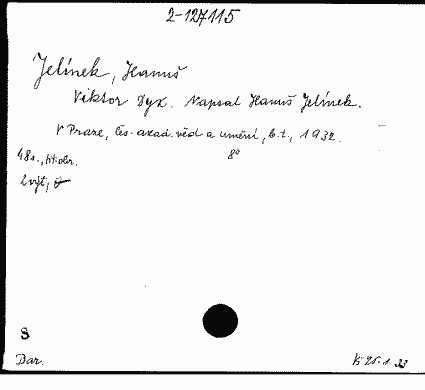 2-127115
Jelínek, Hanuš
Viktor Dyk. Napsal Hanuš Jelínek.
V Praze, Čes. akad. věd a umění, b.t., 1932.
48 s., tit. obr. 8°
2 výt.,
8
Dar. 25.1.33